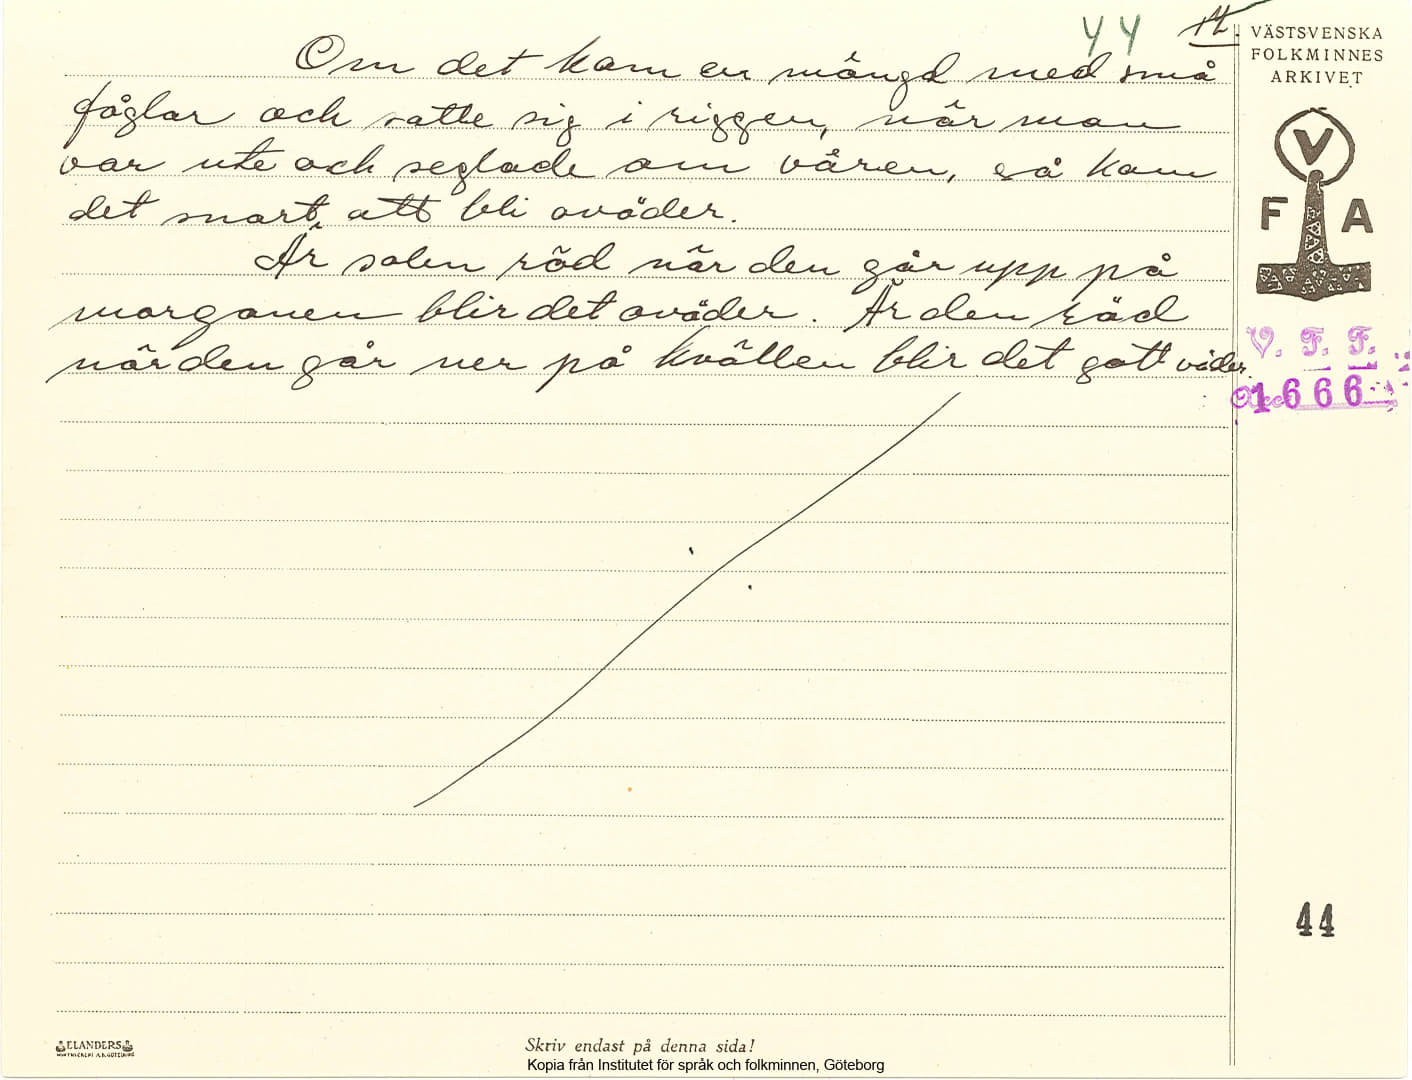 44 14.
VÄSTSVENSKA
FOLKMINNES
ARKIVET
Om det kom en mängd med små
fåglar och satte sig i riggen, när man
var ute och seglade om våren, så kom
det snart att bli oväder.
Är solen röd när den går upp på
morgonen blir det oväder. Är den röd
när den går ner på kvällen blir det gott väder.
V
F A
V. F. F.
1666
44
ELANDERS
Skriv endast på denna sida!
Kopia från Institutet för språk och folkminnen, Göteborg